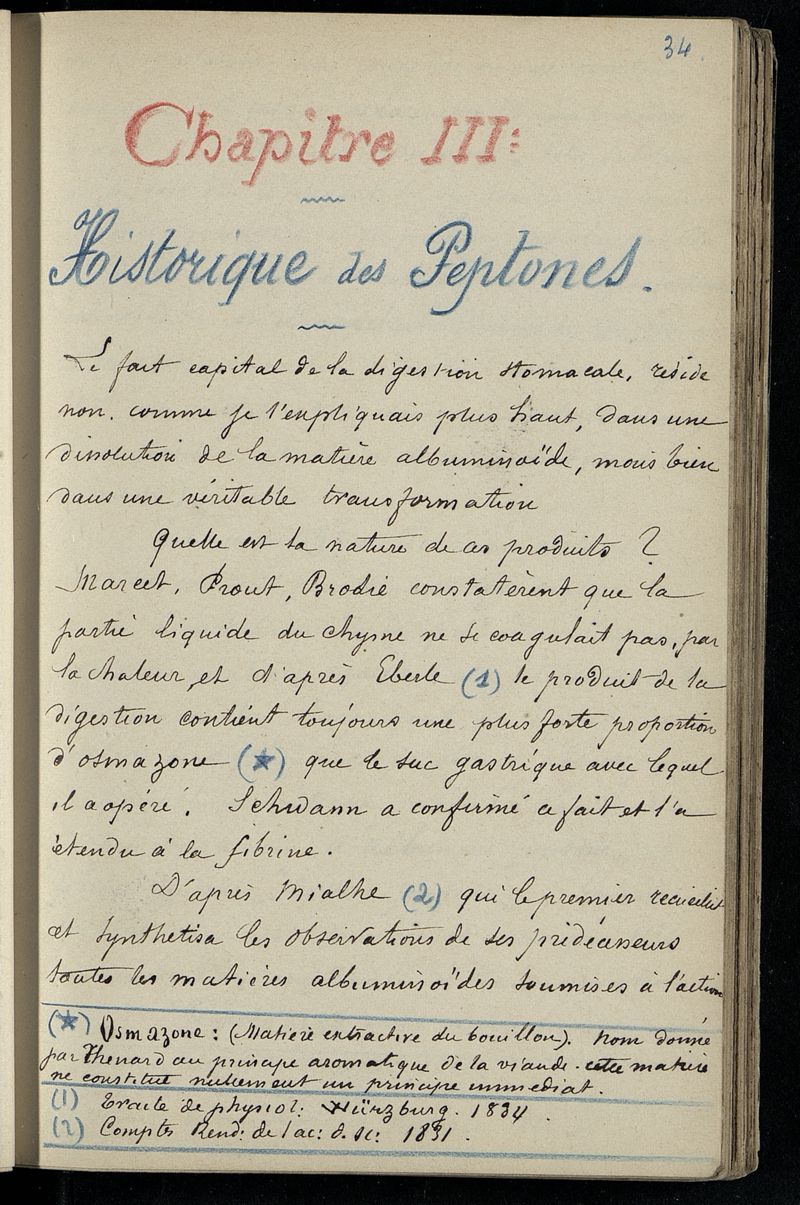 34.
Chapitre III:
Historique des Peptones.
Le fait capital de la digestion stomacale, réside
non, comme je l'expliquais plus haut, dans une
dissolution de la matière albuminoïde, mais bien
dans une véritable transformation
Quelle est la nature de ces produits ?
Marcet, Prout, Brodie constatèrent que la
partie liquide du chyme ne se coagulait pas, par
la chaleur, et d'après Eberle (1) le produit de la
digestion contient toujours une plus forte proportion
d'osmazone (★) que le suc gastrique avec lequel
il a opéré. Schwann a confirmé ce fait et l'a
étendu à la fibrine.
D'après Mialhe (2) qui le premier recueillit
et synthetisa les observations de ses prédécesseurs
toutes les matières albuminoïdes soumises à l'action
(★) Osmazone : (Matière extractive du bouillon). Nom donné
par Thenard au principe aromatique de la viande. cette matière
ne constitue nullement un principe immediat.
(1) Traité de physiol: Würzburg. 1834.
(2) Comptes Rend: de l'ac: d. sc: 1831.